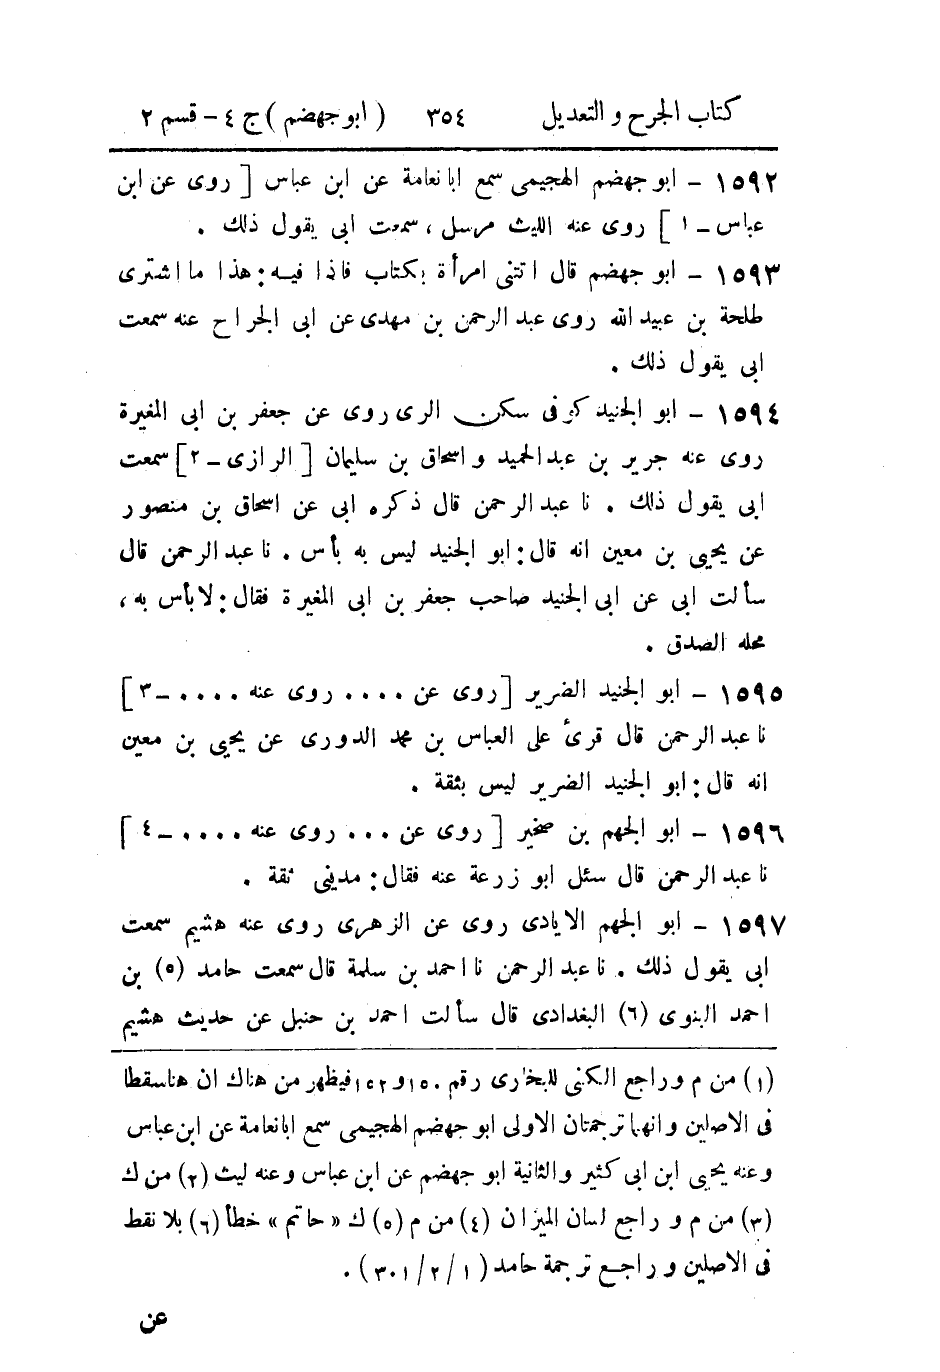 كتاب الجرح و التعديل ٣٥٤ ( ابو جهضم ) ج ٤ - قسم ٢
١٥٩٢ - ابو جهضم الهجيمى سمع ابا نعامة عن ابن عباس [ روى عن ابن
عباس - ١ ] روى عنه الليث مرسل ، سمعت ابى يقول ذلك .
١٥٩٣ - ابو جهضم قال اتتنى امرأة بكتاب فاذا فيه : هذا ما اشترى
طلحة بن عبيد الله روى عبد الرحمن بن مهدى عن ابى الجراح عنه سمعت
ابى يقول ذلك .
١٥٩٤ - ابو الجنيد كوفى سكن الرى روى عن جعفر بن ابى المغيرة
روى عنه جرير بن عبد الحميد و اسحاق بن سليمان [ الرازى - ٢ ] سمعت
ابى يقول ذلك . نا عبد الرحمن قال ذكره ابى عن اسحاق بن منصور
عن يحيى بن معين انه قال : ابو الجنيد ليس به بأس . نا عبد الرحمن قال
سألت ابى عن ابى الجنيد صاحب جعفر بن ابى المغيرة فقال : لا بأس به ،
محله الصدق .
١٥٩٥ - ابو الجنيد الضرير [ روى عن .... روى عنه .... - ٣ ]
نا عبد الرحمن قال قرئ على العباس بن محمد الدورى عن يحيى بن معين
انه قال : ابو الجنيد الضرير ليس بثقة .
١٥٩٦ - ابو الجهم بن صخير [ روى عن ... روى عنه .... - ٤ ]
نا عبد الرحمن قال سئل ابو زرعة عنه فقال : مدينى ثقة .
١٥٩٧ - ابو الجهم الايادى روى عن الزهرى روى عنه هشيم سمعت
ابى يقول ذلك . نا عبد الرحمن نا احمد بن سلمة قال سمعت حامد (٥) بن
احمد البنوى (٦) البغدادى قال سألت احمد بن حنبل عن حديث هشيم
(١) من م و راجع الكنى للبخارى رقم ١٥٠ و ١٥٢ فيظهر من هناك ان هنا سقطا
فى الاصلين و انهما ترجمتان الاولى ابو جهضم الهجيمى سمع ابا نعامة عن ابن عباس
وعنه يحيى ابن ابى كثير والثانية ابو جهضم عن ابن عباس وعنه ليث (٢) من ك
(٣) من م و راجع لسان الميزان (٤) من م (٥) ك « حاتم » خطأ (٦) بلا نقط
فى الاصلين و راجع ترجمة حامد ( ١ / ٢ / ٣٠١ ) .
عن